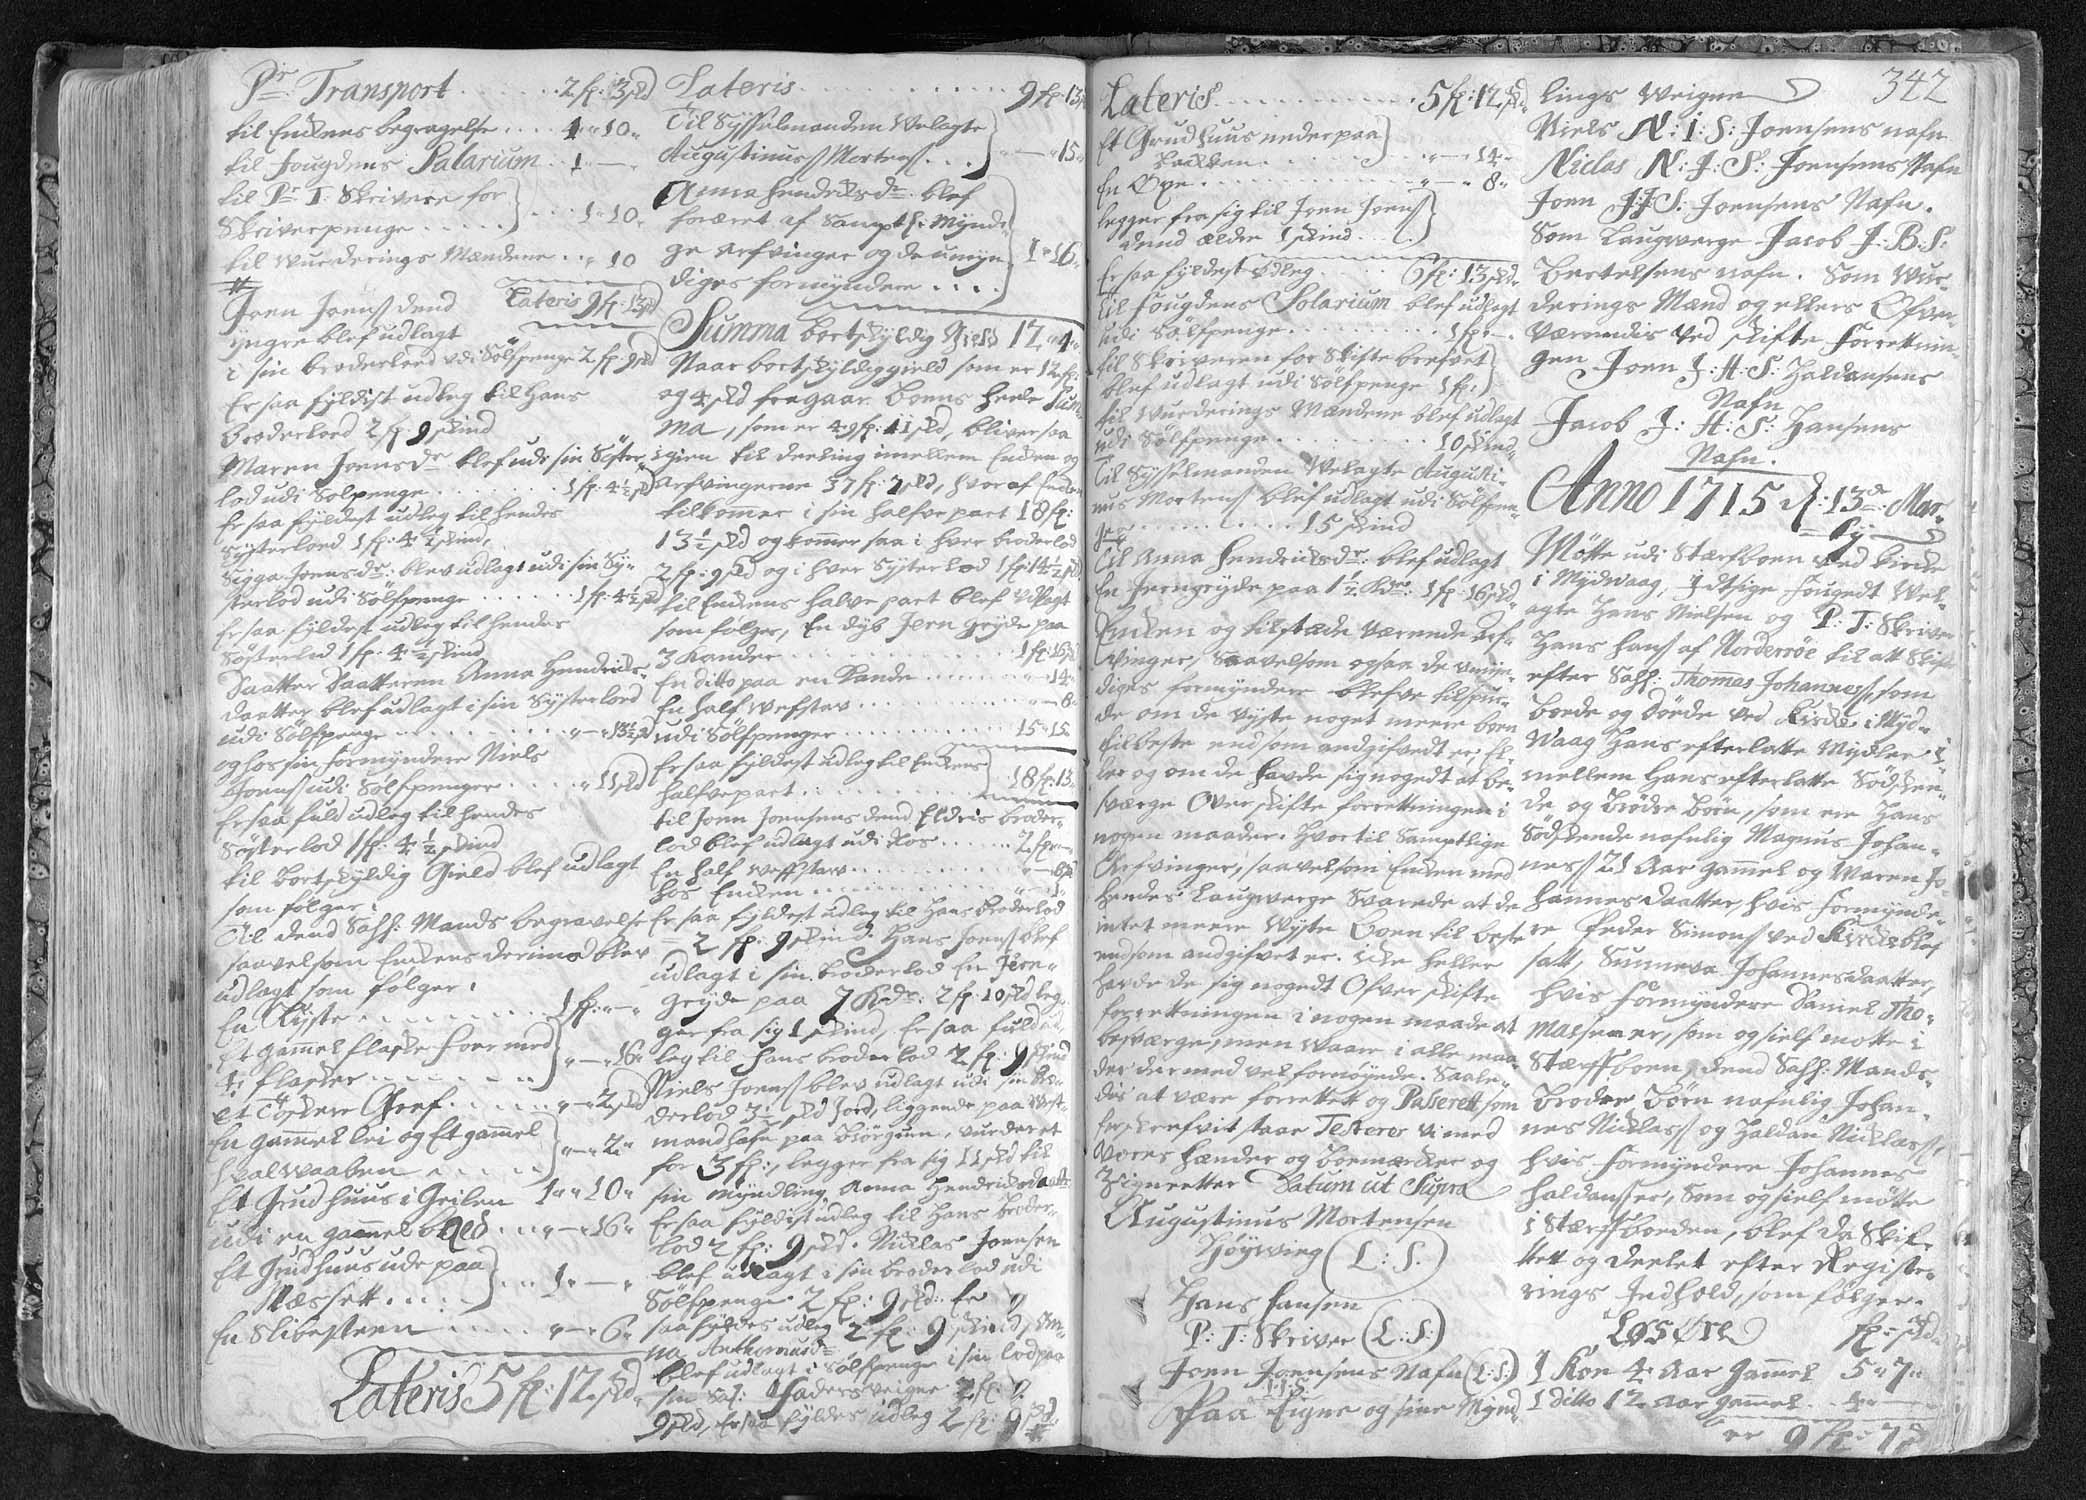 Pr Transport . . . . . . . 2 fl: 3 skd
til Enckens begragelse . . . . 4 " 10 "
til fougdens Salarium . . 1 " — "
til Pr T: Skrivere for
Skriverpenge . . . . . 1 " 10 "
til Wurderings Mændene . . " 10
Lateris 9 fl: 13 skd
Joen Joenss dend
yngre blef udlagt
i sin broderlod udi Sölfpenge 2 fl: 9 skd
Er saa fyldist udleg til hans
Broderlod 2 fl: 9 skind
Maren Joensdr blef udi sin Söster
lod udi Solpenge . . . . . . . 1 fl: 4½ skd
Er saa fyldest udleg til hendes
Systerlod 1 fl: 4½ skind.
Sigga Joensdr: blev udlagt udi sin Sy-
sterlod udi Sölfpenge . . . . . . 1 fl: 4½ skd
Er saa fyldest udleg til hendes
Sösterlod 1 fl: 4½ skind
Daatter Daatteren Anna Hendricks-
daatter blef udlagt i sin Systerlod
udi Sölfpenge . . . . . . . . . " — " 13½ skd
og hos sin formyndere Niels
Joenss udi Sölfpenger . . . . . " 11 skd
Er saa fuld udleg til hendes
Sösterlod 1 fl: 4½ skind
til bortskyldig Gield blef udlagt
som følger:
Til dend Sahl: Mands begravelse
saavelsom Enckens derimod blev
udlagt som følger:
En Kyste . . . . . . . . . . 1 fl: " — "
Et gammel flaske foer med
4: flasker . . . . . . . " — " 16 "
et Töskere Gref . . . . . . " — " 2 skd
En gammel lei og Et gammel
hvalwaaben . . . . . " — " 2 "
Et Grudhuus i Geilen 1 " 10 "
udi en gammel . . . " — " 16 "
Et Grudhuus ude paa
Næssett . . . . . 1 " — "
En Slibesteen . . . . . " — " 6 "
Lateris 5 fl: 12 skd
Lateris . . . . . . . . . . 9 fl: 13
Til Sysselmanden Welagte
Augustinuss Mortenss . . . " — " 15 "
Anna Hendricksdr: blef
foræret af Samptl: Myndi-
ge arfvinger og de umyn-
diges formyndere . . . . 1 " 16 "
Summa bortskyldig Gield 12 " 4 "
Naar bortskyldig gield som er 12 fl:
og 4 skd fragaar Boens heele Sum-
ma, som er 49 fl: 11 skd, bliver saa
igien til deeling imellem Encken og
arfvingerne 37 fl: 7 skd, hvoraf Encken
tilkomer i sin halfve part 18 fl:
13½ skd og kommer saa i hver broderlod
2 fl: 9 skd og i hver Systerlod 1 fl: 4½ skd
til Enckens halve part blef udlagt
som følger, En dyb Jern gryde paa
3 Kander . . . . . . . . . 1 fl: 16 skd
En ditto paa en Kande . . . . . " — " 14 "
En half Wefstav . . . . . . . . " — " 8 "
udi Sölfpenger . . . . . . . . 15 " 15 "
Er saa fyldest udleg til Enckens
halfvepart . . . . . . . . 18 fl: 13
til Joen Joensens dend Eldris broder-
lod blef udlagt udi Kos . . . . . 2 fl " — "
En half Weffstaw . . . . . . . . " — " 8 "
hos Encken . . . . . . . . . . . " — " 1 "
Er saa fyldest udleg til Hans Broderlod
2 fl: 9 skind. Hans Joenss blef
udlagt i sin broderlod En Jern-
gryde paa 7 Kdr: 2 fl: 10 skd leg-
ger fra sig 1 skind, Er saa fuld ud-
leg til hans broderlod 2 fl: 9 skind
Niels Joenss blev udlagt udi sin Bro-
derlod 3½ skd Jord, liggende paa West-
mandhafn paa Biörgum, vurderet
for 3 fl:, legger fra sig 11 skd til
sin Myndling Anna Hendricksdaatter
Er saa fyldist udleg til Hans broder-
lod 2 fl: 9 skd. Nicklas Joensen
blef udlagt i sin broderlod udi
Sölfpenge 2 fl: 9 skd: Er
saa fyldes udleg 2 fl: 9 skind,
blef udlagt i Sölfpenge i sin lod paa
sin Sal: faders veigne 2 fl:
9 skd, Er saa fyldes udleg 2 fl: 9 skd
Lateris . . . . . . . . . . 5 fl: 12 skd
Et Grudhuus nederpaa
backken . . . . . . . " — " 14 "
En Oxe . . . . . . . . . . . " — " 8 "
legger fra sig til Joen Joenss
dend ældre 1 skind . . .
Er saa fyldest udleg . . . 6 fl: 13 skd
til fougdens Solarium blef udlagt
udi Sölfpenge . . . . . . . . 1 fl: " — "
til Skriveren for Skifte brefvet
blef udlagt udi Sölfpenge 1 fl:
til Wurderings Mændene blef udlagt
udi Sölfpenge . . . . . . . . 10 skind
Til Sysselmanden Welagte Augusti-
nus Mortenss blef udlagt udi Sölfpen-
ge . . . . . . . . 15 skind
til Anna Hendricksdr: blef udlagt
En Jerngryde paa 1½ Kdr: 1 fl: 16 skd
Encken og tilstæde værende Arf-
vinger, Saavelsom ogsaa de umyn-
diges formyndere blefve tilspur-
de om de vyste noget meere boen
til beste end som andgifvedt er, El-
ler og om de hafde sig nogedt at be-
sværge Over skifte forrettningen i
nogen maader. Hvortil Samptlige
Arfvinger, saavelsom Encken med
hendes Laugverge Svarede at de
intet meere Wyste Boen til beste
end som andgifvet er, icke heller
hafde de sig nogedt Ofver skifte
forrettningen i nogen maade at
besværge, men Waar i alle maa-
der dermed vel fornøyede. Saale-
dis at være forrettett og Passerett som
forskrefvit staar Testeres vi med
vores hænder og boemærcker og
Zigneetter Datum ut Supra
Augustinus Mortensen
Høyvieg (L: S.)
Hans Hansen
P: T: Skriver (L: S:)
Joen Joensens Nafn (L: S:)
Paa Eigne og sine Mynd-
342
lings Weigne
Niels N: I: S: Joensens nafn
Niclas N: J: S: Joensens Nafn
Joen J: J: S: Joensens Nafn.
Som Laugwerge Jacob J: B: S:
Bertelsens nafn. Som Wur-
derings Mænd og ellers Ofver-
værendis ved skifte forrettnin-
gen Joen J: H: S: Haldansens
Nafn
Jacob J: H: S: Hansens
Nafn.
Anno 1715 d: 13de Mar-
ty
Møtte udi Stærfboen ved Kircke
i Mydwaag, Idtsige fougedt Wel-
agte Hans Nielsen og P: T: Skriver
Hans Hanss af Norderröe til att Skifte
efter Sahl: Thomas Johanness, som
boede og döede ved Kircke i Myd-
waag Hans efterlatte Midler i-
mellem Hans efterlatte Södsken-
de og Brödre Börn, som ere Hans
Södskende nafnlig Magnus Johan-
ness 21 Aar gammel og Maren Jo-
hannes daatter, hvis formynde-
re Peder Simonss ved Kircke blef
satt, Sunneva Johannesdaatter,
hvis formyndere Daniel Tho-
massen er, som og sielf motte i
Stærffboen, dend Sahl: Mands
Broder Börn nafnlig Johan-
nes Nicklass og Haldan Nicklass,
hvis formyndere Johannes
Haldanss er, Som og sielf mötte
i Stærffboeden, blef da Skif-
tett og deelet efter Registe-
rings Indhold, som følger.
Løsöre fl: skd
1 Koe 4: Aar gammel 5 " 7 "
1 ditto 12 aar gammel . . 4 " —
er 9 fl: 7 s